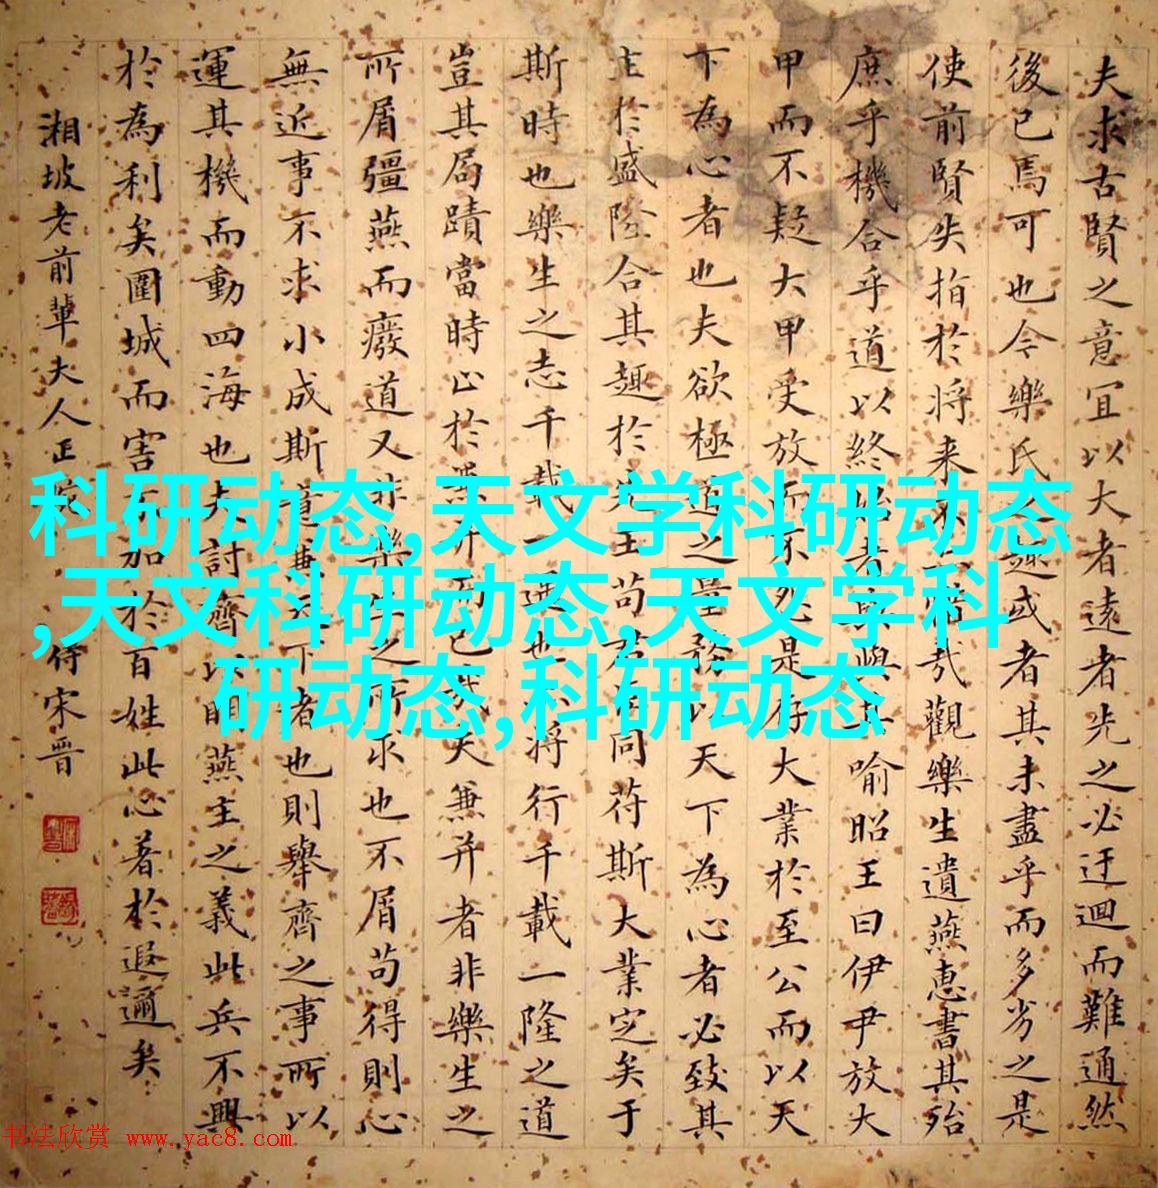 夫求古賢之意宜以大者遠者先之必迂迴而難通然
後已焉可也今樂氏之趣或者其未盡乎而多劣之是
使前賢失指於将来不亦惜哉觀樂生遺燕惠書其殆
庶乎機合乎道以終始者與其喻昭王曰伊尹放大
甲而不疑大甲受放而不怨是存大業於至公而以天
下為心者也夫欲極道之量務以天下為心者必致其
主於盛隆合其趣於先王苟君臣同苻斯大業定矣于
斯時也樂生之志千載一遇也亦將行千載一隆之道
豈其局蹟當時止於兼并而已哉夫兼并者非樂生之
所屑彊燕而廢道又非樂生之所求也不屑苟得則心
無近事不求小成斯意兼天下者也則舉齊之事所以
運其機而動四海也夫討齊以明燕主之義此兵不興
於為利矣圍城而害不加於百姓此心著於遐邇矣
湘坡老前輩夫人正 侍宋晋
科研动态,天文学科研动态
,天文科研动态,天文学科
研动态,科研动态
书法欣赏 www.yac8.com